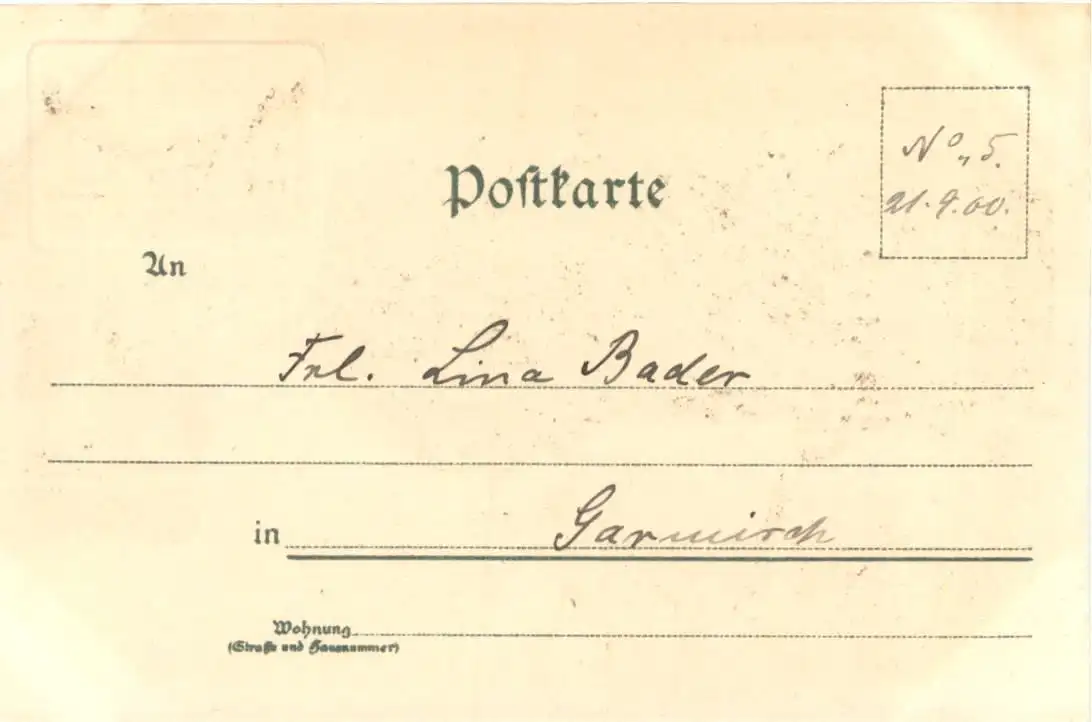 Postkarte
No„ 5.
21.9.00.
An
Frl. Lina Bader
in Garmisch
Wohnung
(Straße und Hausnummer)